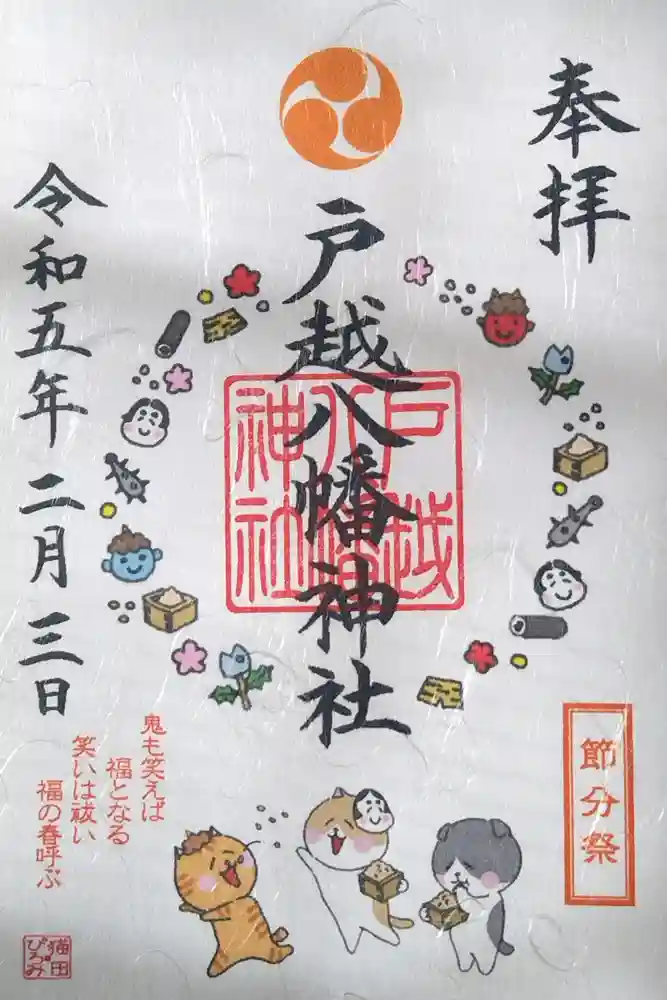 奉拝
戸越八幡神社
戸越
八幡
神社
令和五年二月三日
節分祭
鬼も笑えば
福となる
笑いは祓い
福の春呼ぶ
猫田
ぴろみ